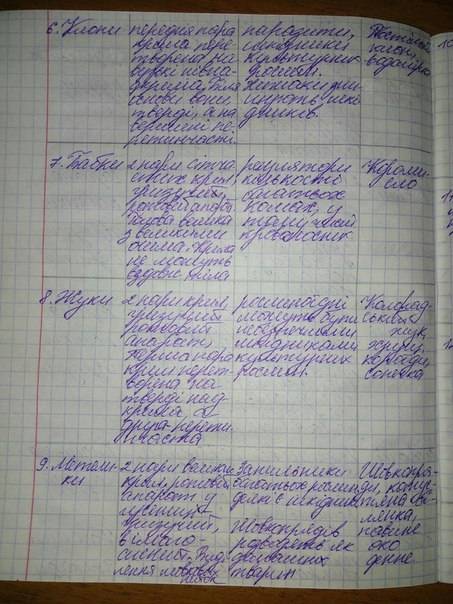 6. Клопи
передня пара
крила пере
творена на
тверді, а на
вершині пе-
ретинчасті.
паразити,
шкідники
культурних
рослин.
Хижаки зни
щують шкі
дників.
Постільний
клоп,
водомірка
7. Бабки
2 пари сітча
стих крил
гризучий
ротовий апарат
голова велика
з великими
очима. Крила
не можуть
вздовж тіла
регулятори
кількості
багатьох
комах, у
тому числі
Коромы-
сло
8. Жуки
2 пари крил,
гризучий
ротовий
апарат,
перша пара
крил перет
ворена на
тверді над
крила, а
друга перетин
часта
рослиноїдні
можуть бути
небезпечними
шкідниками
культурних
рослин.
Колорад-
ський
жук,
хрущ,
сонечка
9. Метели-
ки
2 пари великих
крил, ротовий
апарат у
гусениці
гризучий,
Запильники
багатьох рослин
деякі є шкідники
Шовкопрядів
розводять як
домашніх
тварин
Шовкопря-
ди, капус-
тяна бі-
лянка,
павине
око
денне